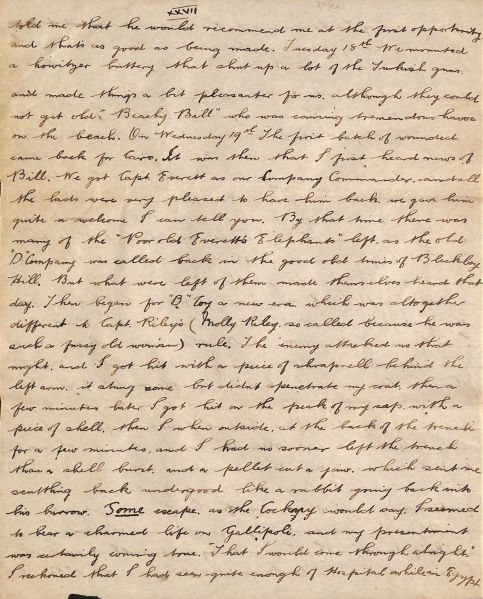 XXVII
told me that he would recommend me at the first opportunity
and that's as good as being made. Tuesday 18th We mounted
a howitzer battery that shut up a lot of the Turkish guns.
and made things a bit pleasanter for us, although they could
not get old "Beachy Bill" who was causing tremendous havoc
on the beach. On Wednesday 19th The first batch of wounded
came back for Cairo, It was then that I first heard news of
Bill. We got Capt. Everett as our Company Commander, and all
the lads were very pleased to have him back, we gave him
quite a welcome I can tell you. By that time there was
many of the "Poor old Everett's Elephants" left, as the old
"D" Company was called back in the good old times of Blackboy
Hill. But what were left of them made themselves heard that
day. Then began for "B" Coy a new era, which was altogether
different to Capt. Riley's (Molly Riley, so called because he was
such a fussy old woman) rule. The enemy attacked us that
night, and I got hit with a piece of shraprell behind the
left arm, it stung some but didnt penetrate my coat, than a
few minutes later I got hit on the peak of my cap, with a
piece of shell, then I when outside, at the back of the trench
for a few minutes, and I had no sooner left the trench
than a shell burst, and a pellet cut a yaw, which sent me
scuttling back undergood like a rabbit going back into
his burrow. Some escape, as the Cockney would say, I seemed
to bear a charmed life on Gallipoli, and my presentment
was certainly coming true, "That I would come through alright."
I reckoned that I had seen quite enough of Hospital while in Egypt.